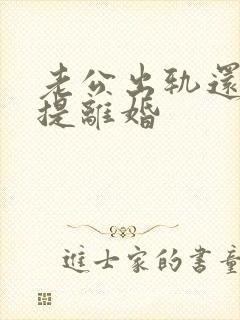 老公出轨還
提離婚
進士家的書童